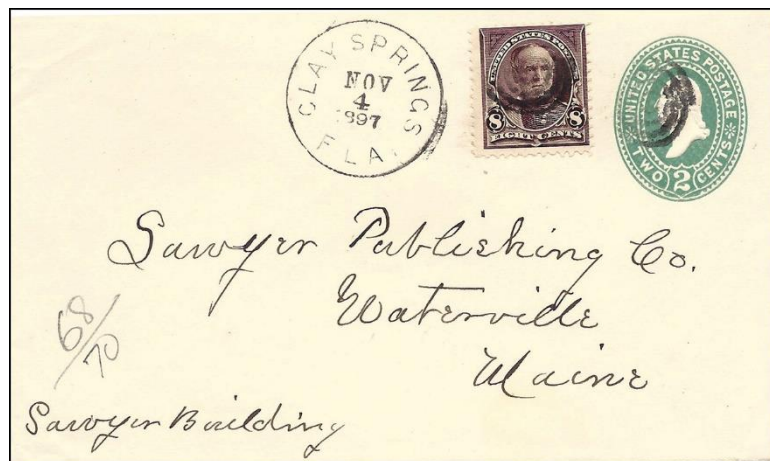 CLAY SPRINGS
NOV
4
1897
FLA.
UNITED STATES POSTAGE
8 8
EIGHT CENTS
UNITED STATES POSTAGE
TWO 2 CENTS
Sawyer Publishing Co.
Waterville
Maine
68/70
Sawyer Building